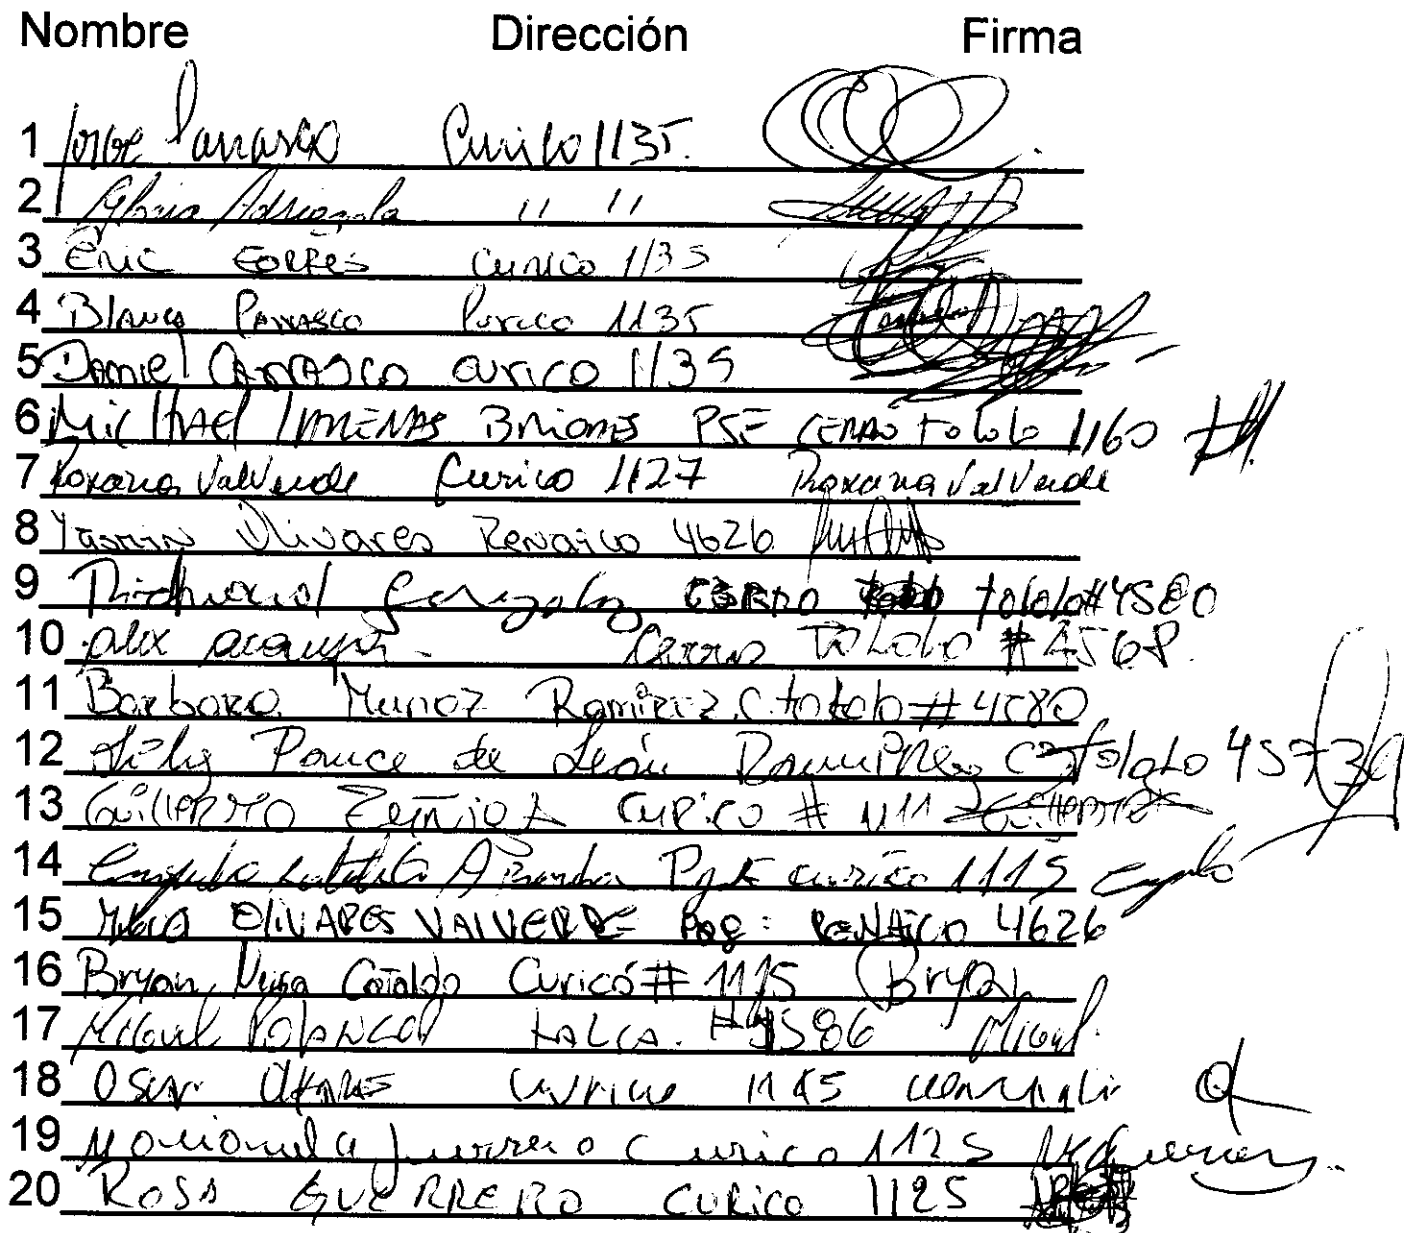 Nombre Dirección Firma
1 Jorge Carrasco Curico 1135.
2 Gloria " "
3 Eric Cortes Curico 1135
4 Blanca Carrasco Curico 1135
5 Daniel Carrasco Curico 1135
6 Michael Briones PSE Cerro Tololo 1160
7 Roxana Valverde Curico 1127 Roxana Valverde
8 Yasmin Olivares Renaico 4626
9 Cerro tololo #4580
10 Alex Cerro Tololo #4568.
11 Barbara Munoz Ramirez C. tololo #4580
12 Ponce de León Ramirez Co Tololo 4573
13 Guillermo Zuñiga Curico # 1111 Guillermo
14 Pje curico 1115
15 OLIVARES VALVERDE Renaico 4626
16 Bryan Cataldo Curicó # 1115 Bryan
17 Miguel Polanco Talca. # Miguel
18 Oscar Curico
19 Marianela Guerrero Curico 1125 Guerrero
20 ROSA GUERRERO CURICO 1125